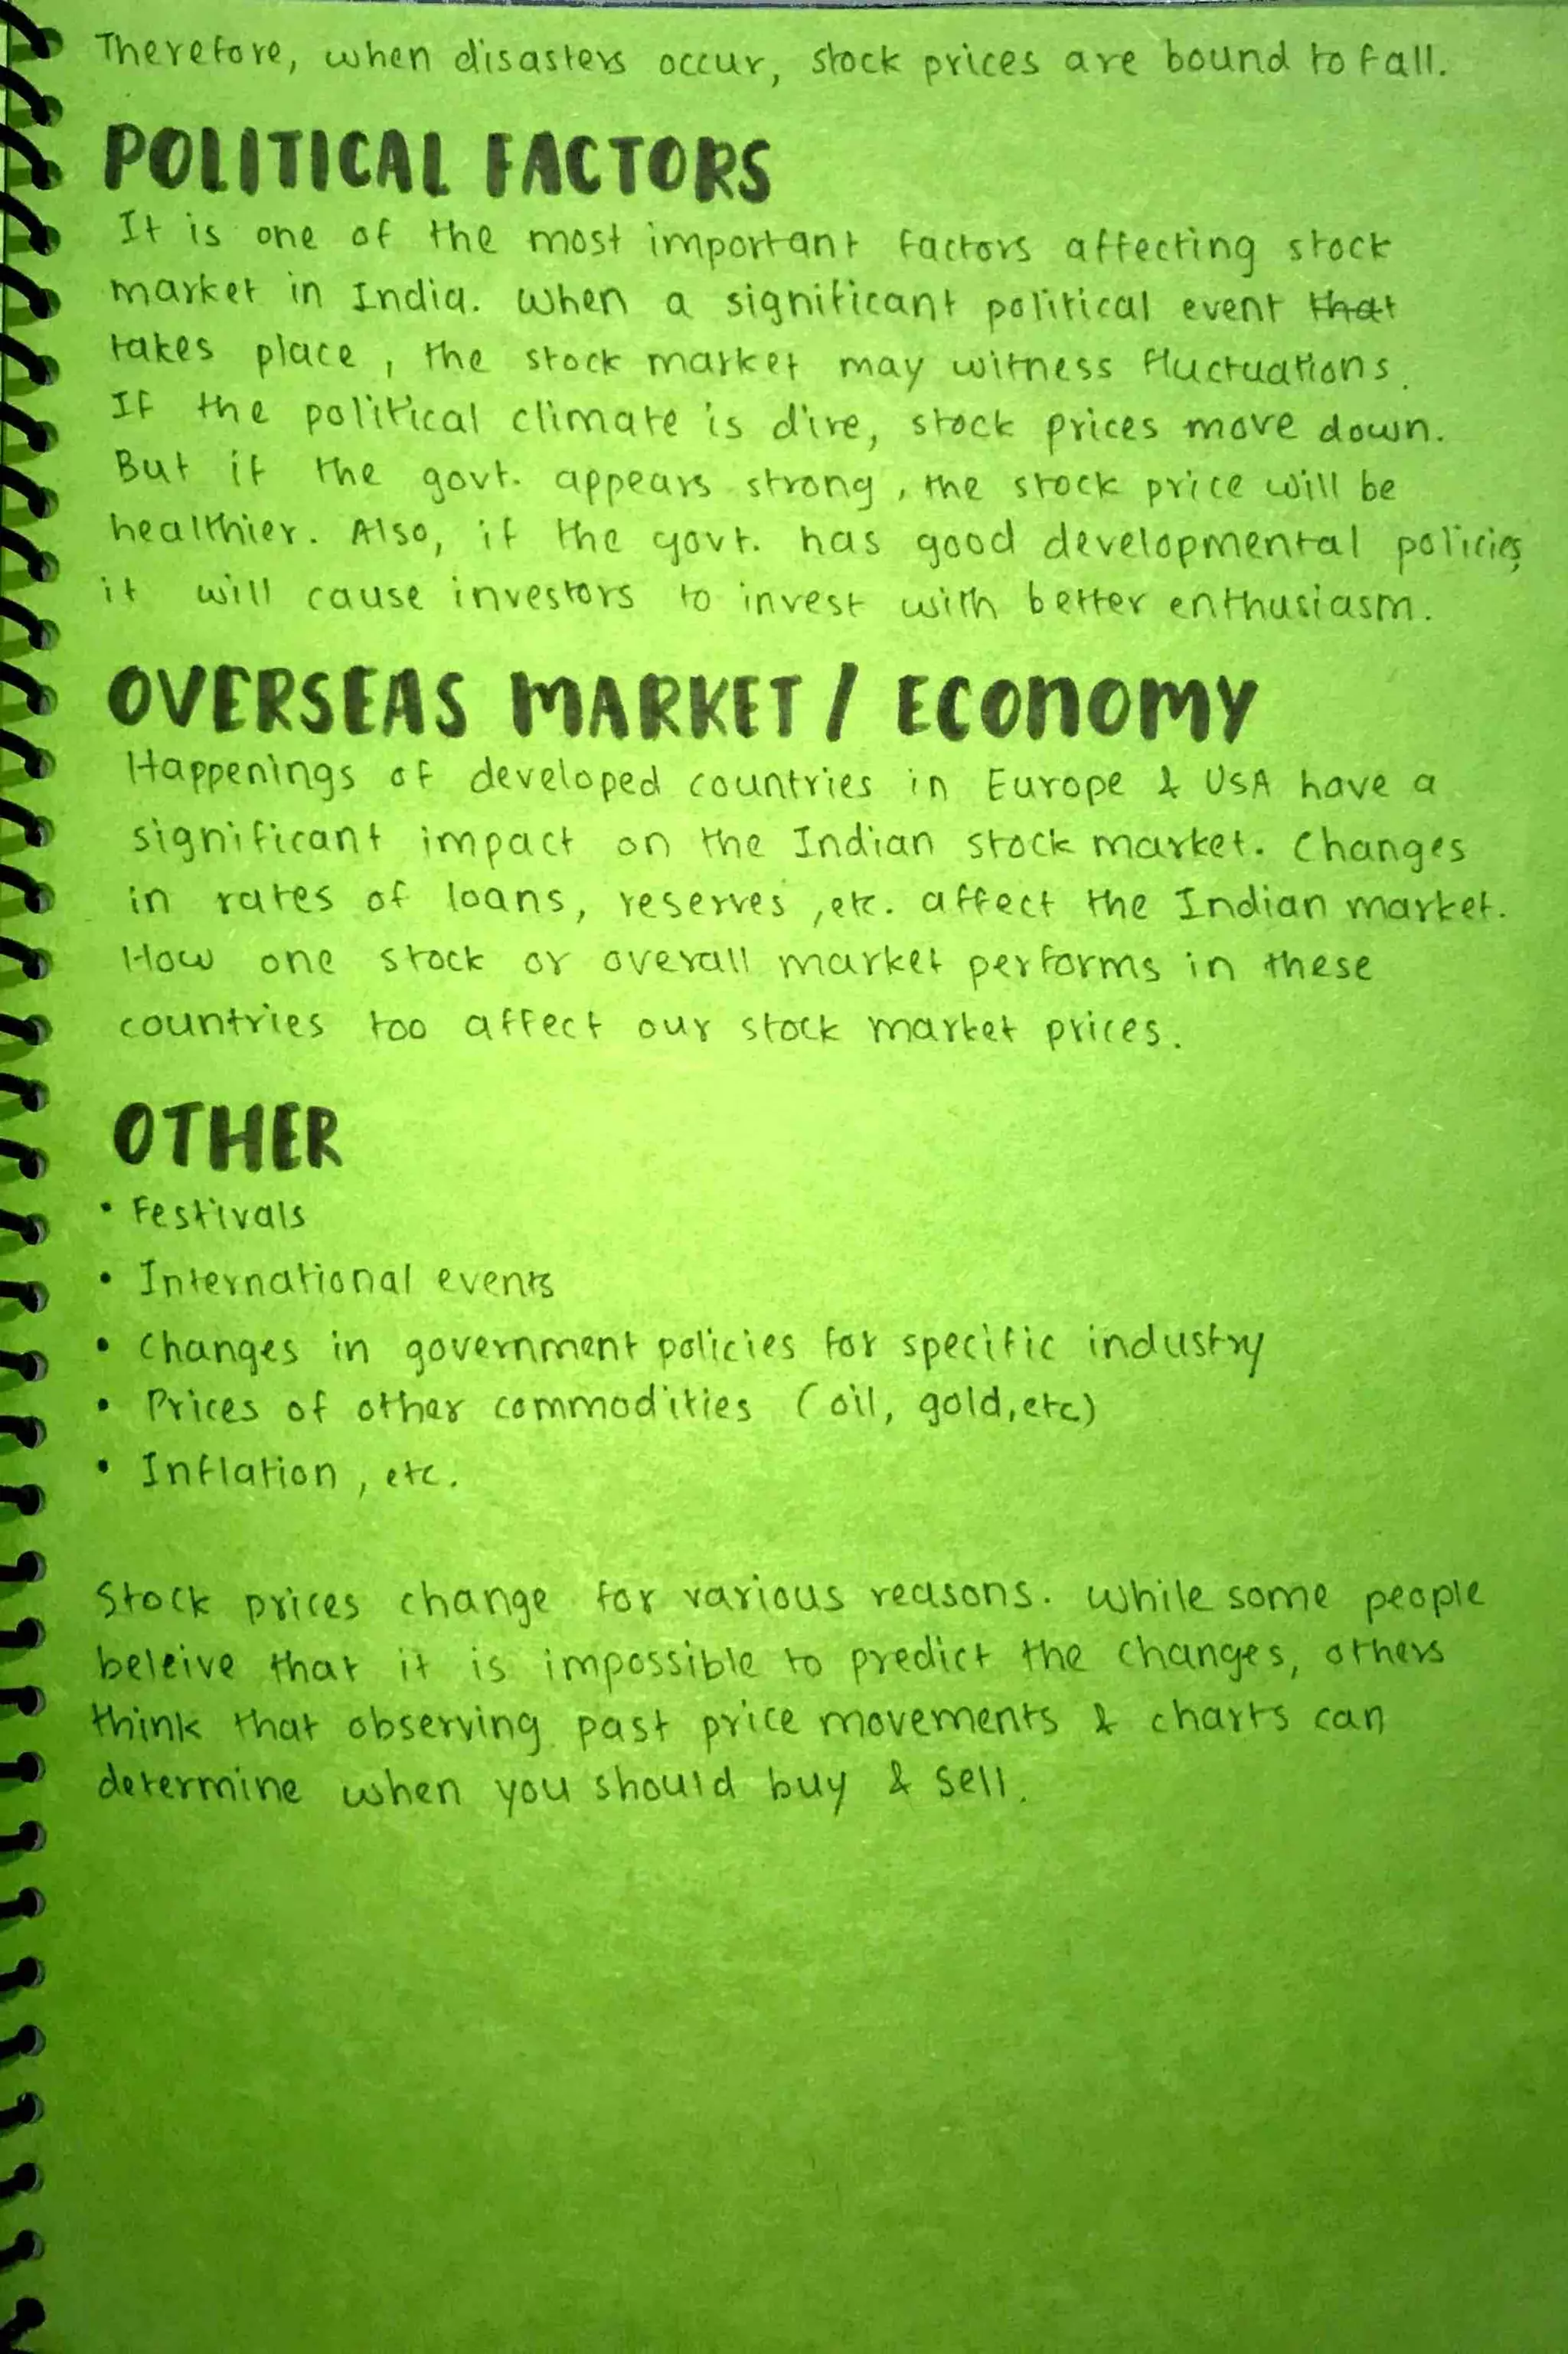 Therefore, when disasters occur, stock prices are bound to fall.
POLITICAL FACTORS
It is one of the most important factors affecting stock
market in India. When a significant political event ~~that~~
takes place, the stock market may witness fluctuations.
If the political climate is dire, stock prices move down.
But if the govt. appears strong, the stock price will be
healthier. Also, if the govt. has good developmental policies,
it will cause investors to invest with better enthusiasm.
OVERSEAS MARKET / ECONOMY
Happenings of developed countries in Europe & USA have a
significant impact on the Indian stock market. Changes
in rates of loans, reserves, etc. affect the Indian market.
How one stock or overall market performs in these
countries too affect our stock market prices.
OTHER
• Festivals
• International events
• Changes in government policies for specific industry
• Prices of other commodities (oil, gold, etc)
• Inflation, etc.
Stock prices change for various reasons. While some people
beleive that it is impossible to predict the changes, others
think that observing past price movements & charts can
determine when you should buy & sell.